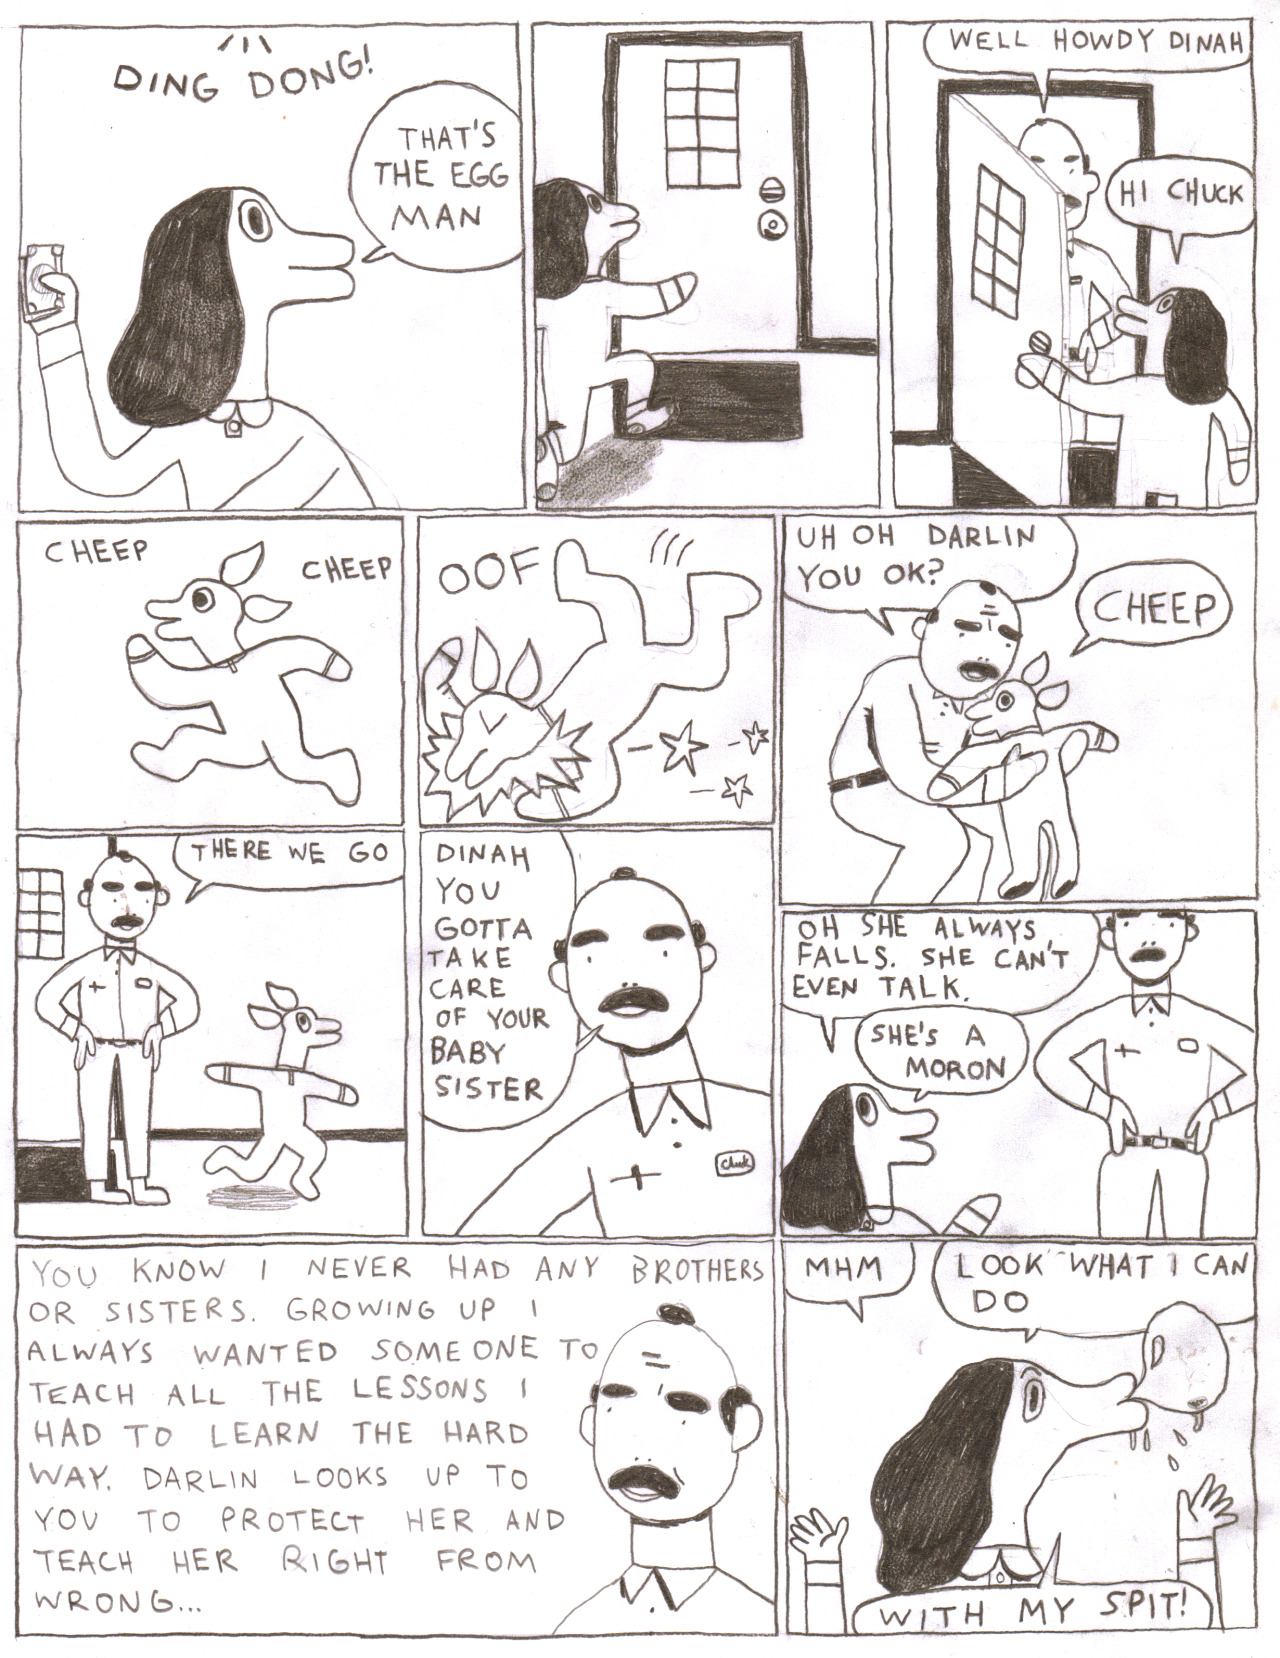 DING DONG!
THAT'S
THE EGG
MAN
WELL HOWDY DINAH
HI CHUCK
CHEEP
CHEEP
OOF
UH OH DARLIN
YOU OK?
CHEEP
THERE WE GO
DINAH
YOU
GOTTA
TAKE
CARE
OF YOUR
BABY
SISTER
Chuck
OH SHE ALWAYS
FALLS. SHE CAN'T
EVEN TALK.
SHE'S A
MORON
YOU KNOW I NEVER HAD ANY BROTHERS
OR SISTERS. GROWING UP I
ALWAYS WANTED SOMEONE TO
TEACH ALL THE LESSONS I
HAD TO LEARN THE HARD
WAY. DARLIN LOOKS UP TO
YOU TO PROTECT HER AND
TEACH HER RIGHT FROM
WRONG...
MHM
LOOK WHAT I CAN
DO
WITH MY SPIT!